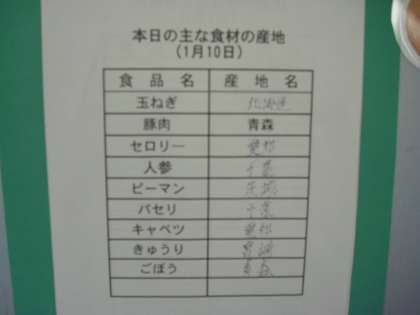 本日の主な食材の産地
(1月10日)
食品名 産地名
玉ねぎ 北海道
豚肉 青森
セロリー 愛知
人参 千葉
ピーマン 茨城
パセリ 千葉
キャベツ 愛知
きゅうり 宮崎
ごぼう 青森